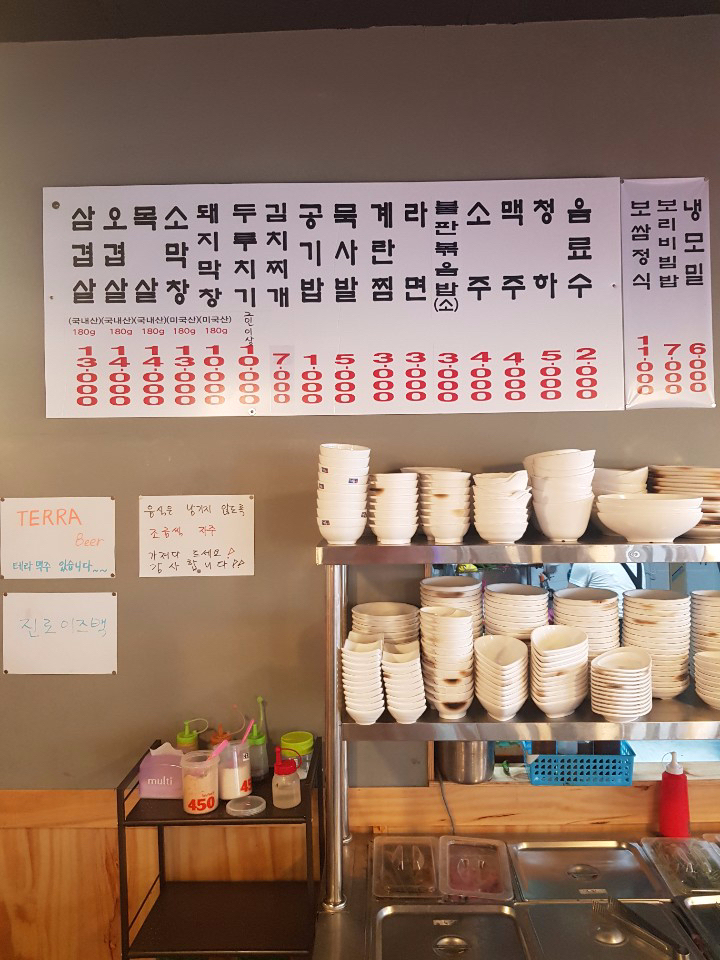 삼겹살 (국내산) 180g 13,000
오겹살 (국내산) 180g 14,000
목살 (국내산) 180g 14,000
소막창 (미국산) 180g 13,000
돼지막창 (미국산) 180g 10,000
두루치기 2인이상 10,000
김치찌개 7,000
공기밥 1,000
묵사발 5,000
계란찜 3,000
라면 3,000
불판볶음밥(소) 3,000
소주 4,000
맥주 4,000
청하 5,000
음료수 2,000
보쌈정식 11,000
보리비빔밥 7,000
냉모밀 6,000
TERRA
Beer
테라 맥주 있습니다~~
음식은 남기지 않도록
조금씩 자주
가져다 드세요!
감사합니다^^
진로이즈백
multi
450
45